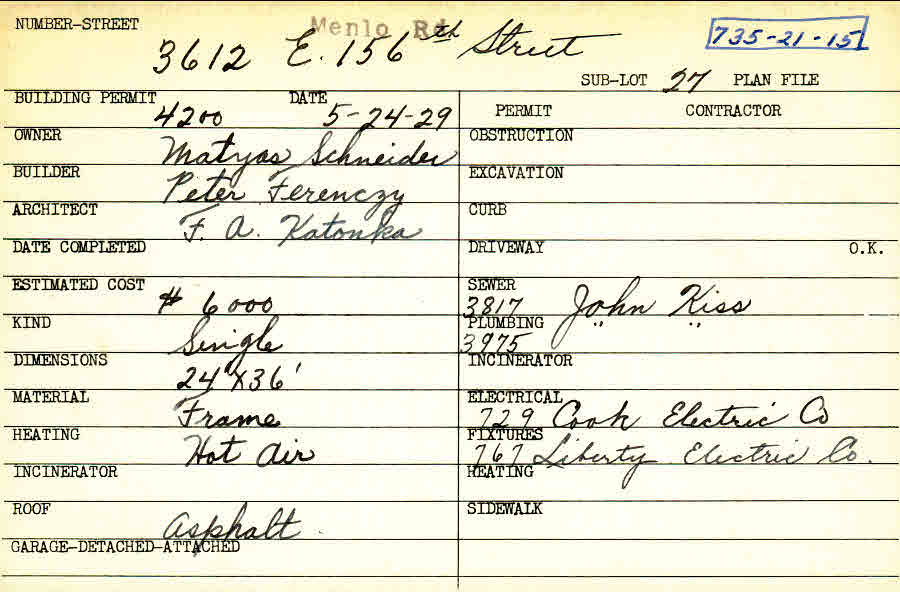 NUMBER-STREET Menlo Rd 735-21-15
3612 E. 156th Street
SUB-LOT 27 PLAN FILE
BUILDING PERMIT 4200 DATE 5-24-29
PERMIT CONTRACTOR
OWNER Matyas Schneider
OBSTRUCTION
BUILDER Peter Ferenczy
EXCAVATION
ARCHITECT F. A. Katonka
CURB
DATE COMPLETED
DRIVEWAY O.K.
ESTIMATED COST $ 6000
SEWER 3817 John Kiss
KIND Single
PLUMBING 3975 " "
DIMENSIONS 24'X36'
INCINERATOR
MATERIAL Frame
ELECTRICAL 729 Cook Electric Co
HEATING Hot Air
FIXTURES 767 Liberty Electric Co.
INCINERATOR
HEATING
ROOF Asphalt
SIDEWALK
GARAGE-DETACHED-ATTACHED